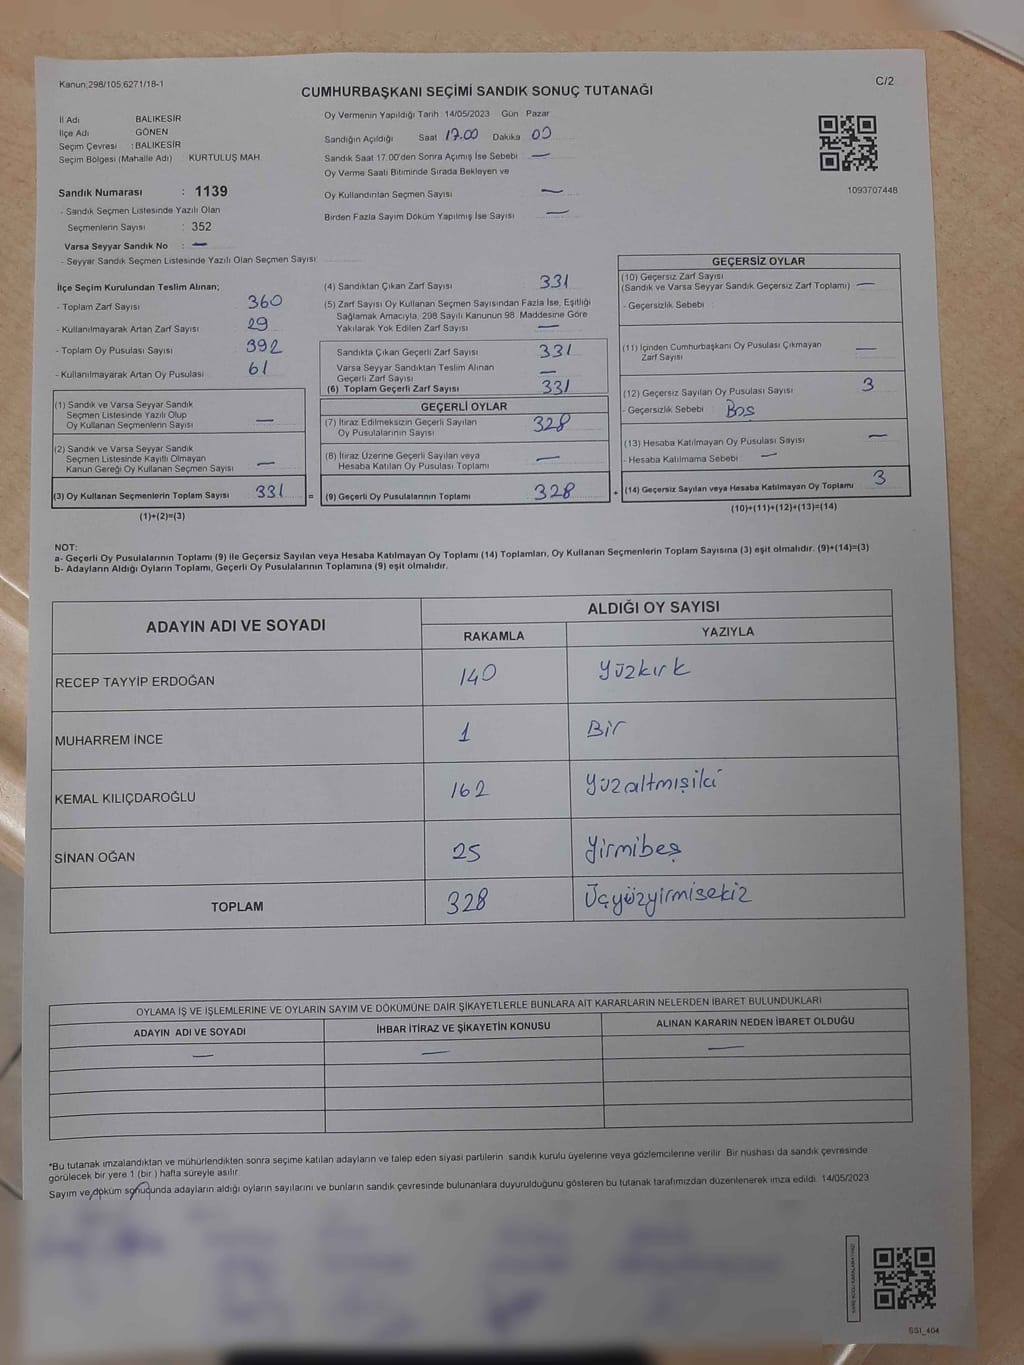 Kanun;298/105,6271/18-1
C/2
CUMHURBAŞKANI SEÇİMİ SANDIK SONUÇ TUTANAĞI
İl Adı BALIKESİR
İlçe Adı GÖNEN
Seçim Çevresi : BALIKESİR
Seçim Bölgesi (Mahalle Adı) KURTULUŞ MAH.
Sandık Numarası : 1139
- Sandık Seçmen Listesinde Yazılı Olan
Seçmenlerin Sayısı : 352
Varsa Seyyar Sandık No : —
- Seyyar Sandık Seçmen Listesinde Yazılı Olan Seçmen Sayısı:
Oy Vermenin Yapıldığı Tarih 14/05/2023 Gün Pazar
Sandığın Açıldığı Saat 17.00 Dakika 00
Sandık Saat 17.00'den Sonra Açımış İse Sebebi —
Oy Verme Saati Bitiminde Sırada Bekleyen ve
Oy Kullandırılan Seçmen Sayısı —
Birden Fazla Sayım Döküm Yapılmış İse Sayısı —
1093707448
İlçe Seçim Kurulundan Teslim Alınan;
- Toplam Zarf Sayısı 360
- Kullanılmayarak Artan Zarf Sayısı 29
- Toplam Oy Pusulası Sayısı 392
- Kullanılmayarak Artan Oy Pusulası 61
(1) Sandık ve Varsa Seyyar Sandık
Seçmen Listesinde Yazılı Olup
Oy Kullanan Seçmenlerin Sayısı —
(2) Sandık ve Varsa Seyyar Sandık
Seçmen Listesinde Kayıtlı Olmayan
Kanun Gereği Oy Kullanan Seçmen Sayısı —
(3) Oy Kullanan Seçmenlerin Toplam Sayısı 331 =
(1)+(2)=(3)
(4) Sandıktan Çıkan Zarf Sayısı 331
(5) Zarf Sayısı Oy Kullanan Seçmen Sayısından Fazla İse, Eşitliği
Sağlamak Amacıyla, 298 Sayılı Kanunun 98. Maddesine Göre
Yakılarak Yok Edilen Zarf Sayısı —
Sandıkta Çıkan Geçerli Zarf Sayısı 331
Varsa Seyyar Sandıktan Teslim Alınan
Geçerli Zarf Sayısı —
(6) Toplam Geçerli Zarf Sayısı 331
GEÇERLİ OYLAR
(7) İtiraz Edilmeksizin Geçerli Sayılan
Oy Pusulalarının Sayısı 328
(8) İtiraz Üzerine Geçerli Sayılan veya
Hesaba Katılan Oy Pusulası Toplamı —
(9) Geçerli Oy Pusulalarının Toplamı 328 +
GEÇERSİZ OYLAR
(10) Geçersiz Zarf Sayısı
(Sandık ve Varsa Seyyar Sandık Geçersiz Zarf Toplamı) —
- Geçersizlik Sebebi :
(11) İçinden Cumhurbaşkanı Oy Pusulası Çıkmayan
Zarf Sayısı —
(12) Geçersiz Sayılan Oy Pusulası Sayısı 3
- Geçersizlik Sebebi : Boş
(13) Hesaba Katılmayan Oy Pusulası Sayısı —
- Hesaba Katılmama Sebebi : —
(14) Geçersiz Sayılan veya Hesaba Katılmayan Oy Toplamı 3
(10)+(11)+(12)+(13)=(14)
NOT:
a- Geçerli Oy Pusulalarının Toplamı (9) ile Geçersiz Sayılan veya Hesaba Katılmayan Oy Toplamı (14) Toplamları, Oy Kullanan Seçmenlerin Toplam Sayısına (3) eşit olmalıdır. (9)+(14)=(3)
b- Adayların Aldığı Oyların Toplamı, Geçerli Oy Pusulalarının Toplamına (9) eşit olmalıdır.
ADAYIN ADI VE SOYADI ALDIĞI OY SAYISI
RAKAMLA YAZIYLA
RECEP TAYYİP ERDOĞAN 140 Yüzkırk
MUHARREM İNCE 1 Bir
KEMAL KILIÇDAROĞLU 162 Yüzaltmışiki
SİNAN OĞAN 25 Yirmibeş
TOPLAM 328 Üçyüzyirmisekiz
OYLAMA İŞ VE İŞLEMLERİNE VE OYLARIN SAYIM VE DÖKÜMÜNE DAİR ŞİKAYETLERLE BUNLARA AİT KARARLARIN NELERDEN İBARET BULUNDUKLARI
ADAYIN ADI VE SOYADI İHBAR İTİRAZ VE ŞİKAYETİN KONUSU ALINAN KARARIN NEDEN İBARET OLDUĞU
— — —
*Bu tutanak imzalandıktan ve mühürlendikten sonra seçime katılan adayların ve talep eden siyasi partilerin sandık kurulu üyelerine veya gözlemcilerine verilir. Bir nüshası da sandık çevresinde
görülecek bir yere 1 (bir ) hafta süreyle asılır.
Sayım ve döküm sonucunda adayların aldığı oyların sayılarını ve bunların sandık çevresinde bulunanlara duyurulduğunu gösteren bu tutanak tarafımızdan düzenlenerek imza edildi. 14/05/2023
SSI_404